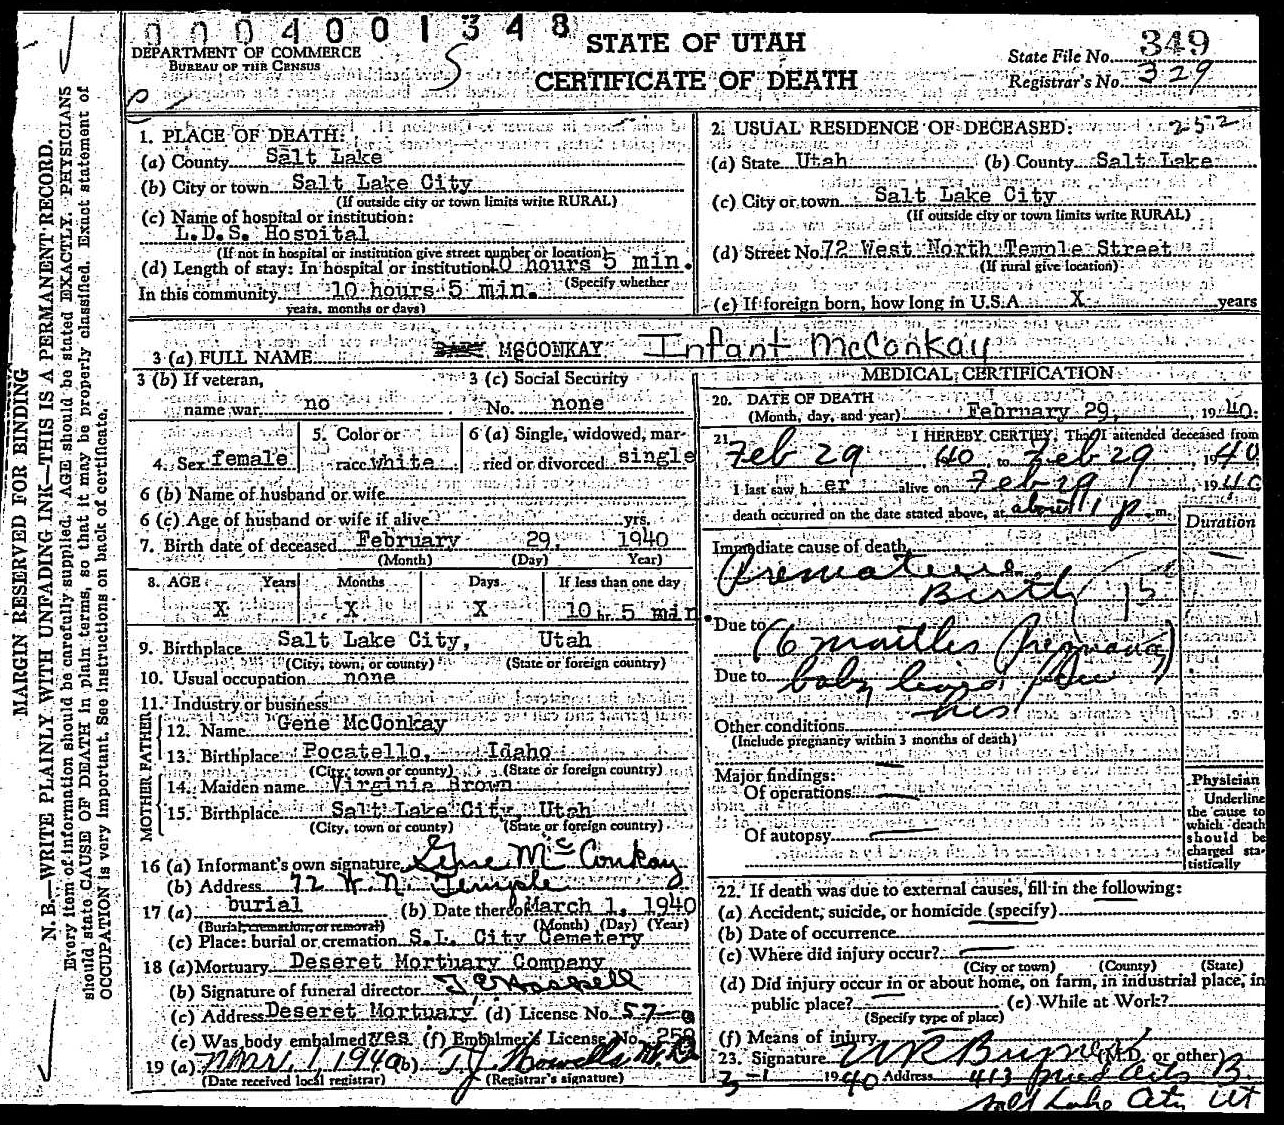 0004001348
DEPARTMENT OF COMMERCE
BUREAU OF THE CENSUS
STATE OF UTAH
CERTIFICATE OF DEATH
State File No. 349
Registrar's No. 329
MARGIN RESERVED FOR BINDING
N. B.—WRITE PLAINLY WITH UNFADING INK—THIS IS A PERMANENT RECORD.
Every item of information should be carefully supplied. AGE should be stated EXACTLY. PHYSICIANS
should state CAUSE OF DEATH in plain terms, so that it may be properly classified. Exact statement of
OCCUPATION is very important. See instructions on back of certificate.
1. PLACE OF DEATH:
(a) County Salt Lake
(b) City or town Salt Lake City
(If outside city or town limits write RURAL)
(c) Name of hospital or institution:
L.D.S. Hospital
(If not in hospital or institution give street number or location)
(d) Length of stay: In hospital or institution 10 hours 5 min.
(Specify whether
In this community 10 hours 5 min.
years, months or days)
2. USUAL RESIDENCE OF DECEASED: 252
(a) State Utah (b) County Salt Lake
(c) City or town Salt Lake City
(If outside city or town limits write RURAL)
(d) Street No. 72 West North Temple Street
(If rural give location)
(e) If foreign born, how long in U.S.A. X years
3 (a) FULL NAME MCCONKAY Infant McConkay
3 (b) If veteran, 3 (c) Social Security
name war no No. none
4. Sex female 5. Color or race white 6 (a) Single, widowed, married or divorced single
6 (b) Name of husband or wife
6 (c) Age of husband or wife if alive yrs.
7. Birth date of deceased February 29, 1940
(Month) (Day) Year)
8. AGE Years Months Days If less than one day
X X X 10 hr. 5 min.
9. Birthplace Salt Lake City, Utah
(City, town, or county) (State or foreign country)
10. Usual occupation none
11. Industry or business
FATHER
12. Name Gene McConkay
13. Birthplace Pocatello, Idaho
(City, town or county) (State or foreign country)
MOTHER
14. Maiden name Virginia Brown
15. Birthplace Salt Lake City, Utah
(City, town or county) (State or foreign country)
16 (a) Informant's own signature Gene McConkay
(b) Address 72 W. N. Temple
17 (a) burial (b) Date thereof March 1, 1940
(Burial, cremation, or removal) (Month) (Day) (Year)
(c) Place: burial or cremation S.L. City Cemetery
18 (a) Mortuary Deseret Mortuary Company
(b) Signature of funeral director
(c) Address Deseret Mortuary (d) License No. 57
(e) Was body embalmed? yes (f) Embalmer's License No. 250
19 (a) Mar. 1, 1940 (b) T.J. Howells M.D.
(Date received local registrar) (Registrar's signature)
MEDICAL CERTIFICATION
20. DATE OF DEATH
(Month, day, and year) February 29, 1940.
21. I HEREBY CERTIFY, That I attended deceased from
Feb 29, 40 to Feb 29, 1940
I last saw her alive on Feb 29, 1940
death occurred on the date stated above, at about 1 p. m.
Duration
Immediate cause of death
Premature
Birth
Due to (6 months
Due to baby
Other conditions
(Include pregnancy within 3 months of death)
Major findings:
Of operations
Of autopsy
Physician
Underline
the cause to
which death
should be
charged sta-
tistically
22. If death was due to external causes, fill in the following:
(a) Accident, suicide, or homicide (specify)
(b) Date of occurrence
(c) Where did injury occur?
(City or town) (County) (State)
(d) Did injury occur in or about home, on farm, in industrial place, in
public place? (e) While at Work?
(Specify type of place)
(f) Means of injury
23. Signature (M.D. or other)
3-1 1940 Address 413 Med Arts B.
Salt Lake City Ut